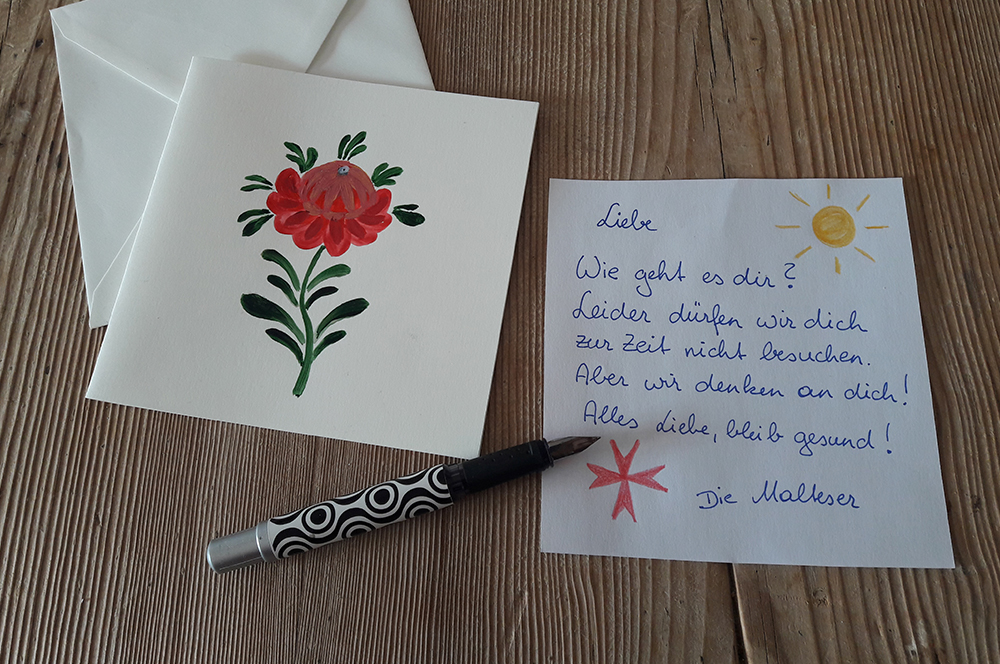 Liebe
Wie geht es dir?
Leider dürfen wir dich
zur Zeit nicht besuchen.
Aber wir denken an dich!
Alles Liebe, bleib gesund!
Die Malteser